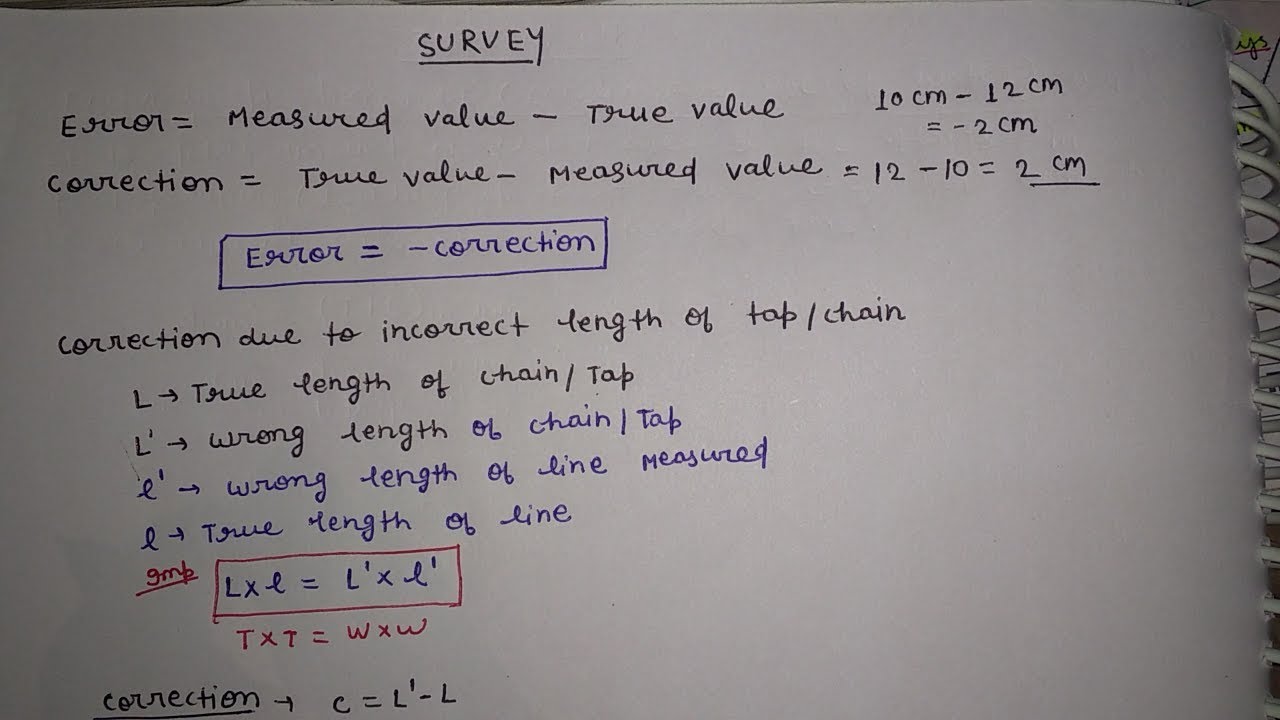 SURVEY
Error = Measured value - True value
10 cm - 12 cm
= - 2 cm
correction = True value - Measured value = 12 - 10 = 2 cm
Error = - correction
correction due to incorrect length of tap / chain
L → True length of chain / Tap
L' → wrong length of chain / Tap
l' → wrong length of line measured
l → True length of line
Imp
L × l = L' × l'
T × T = W × W
correction → c = L' - L